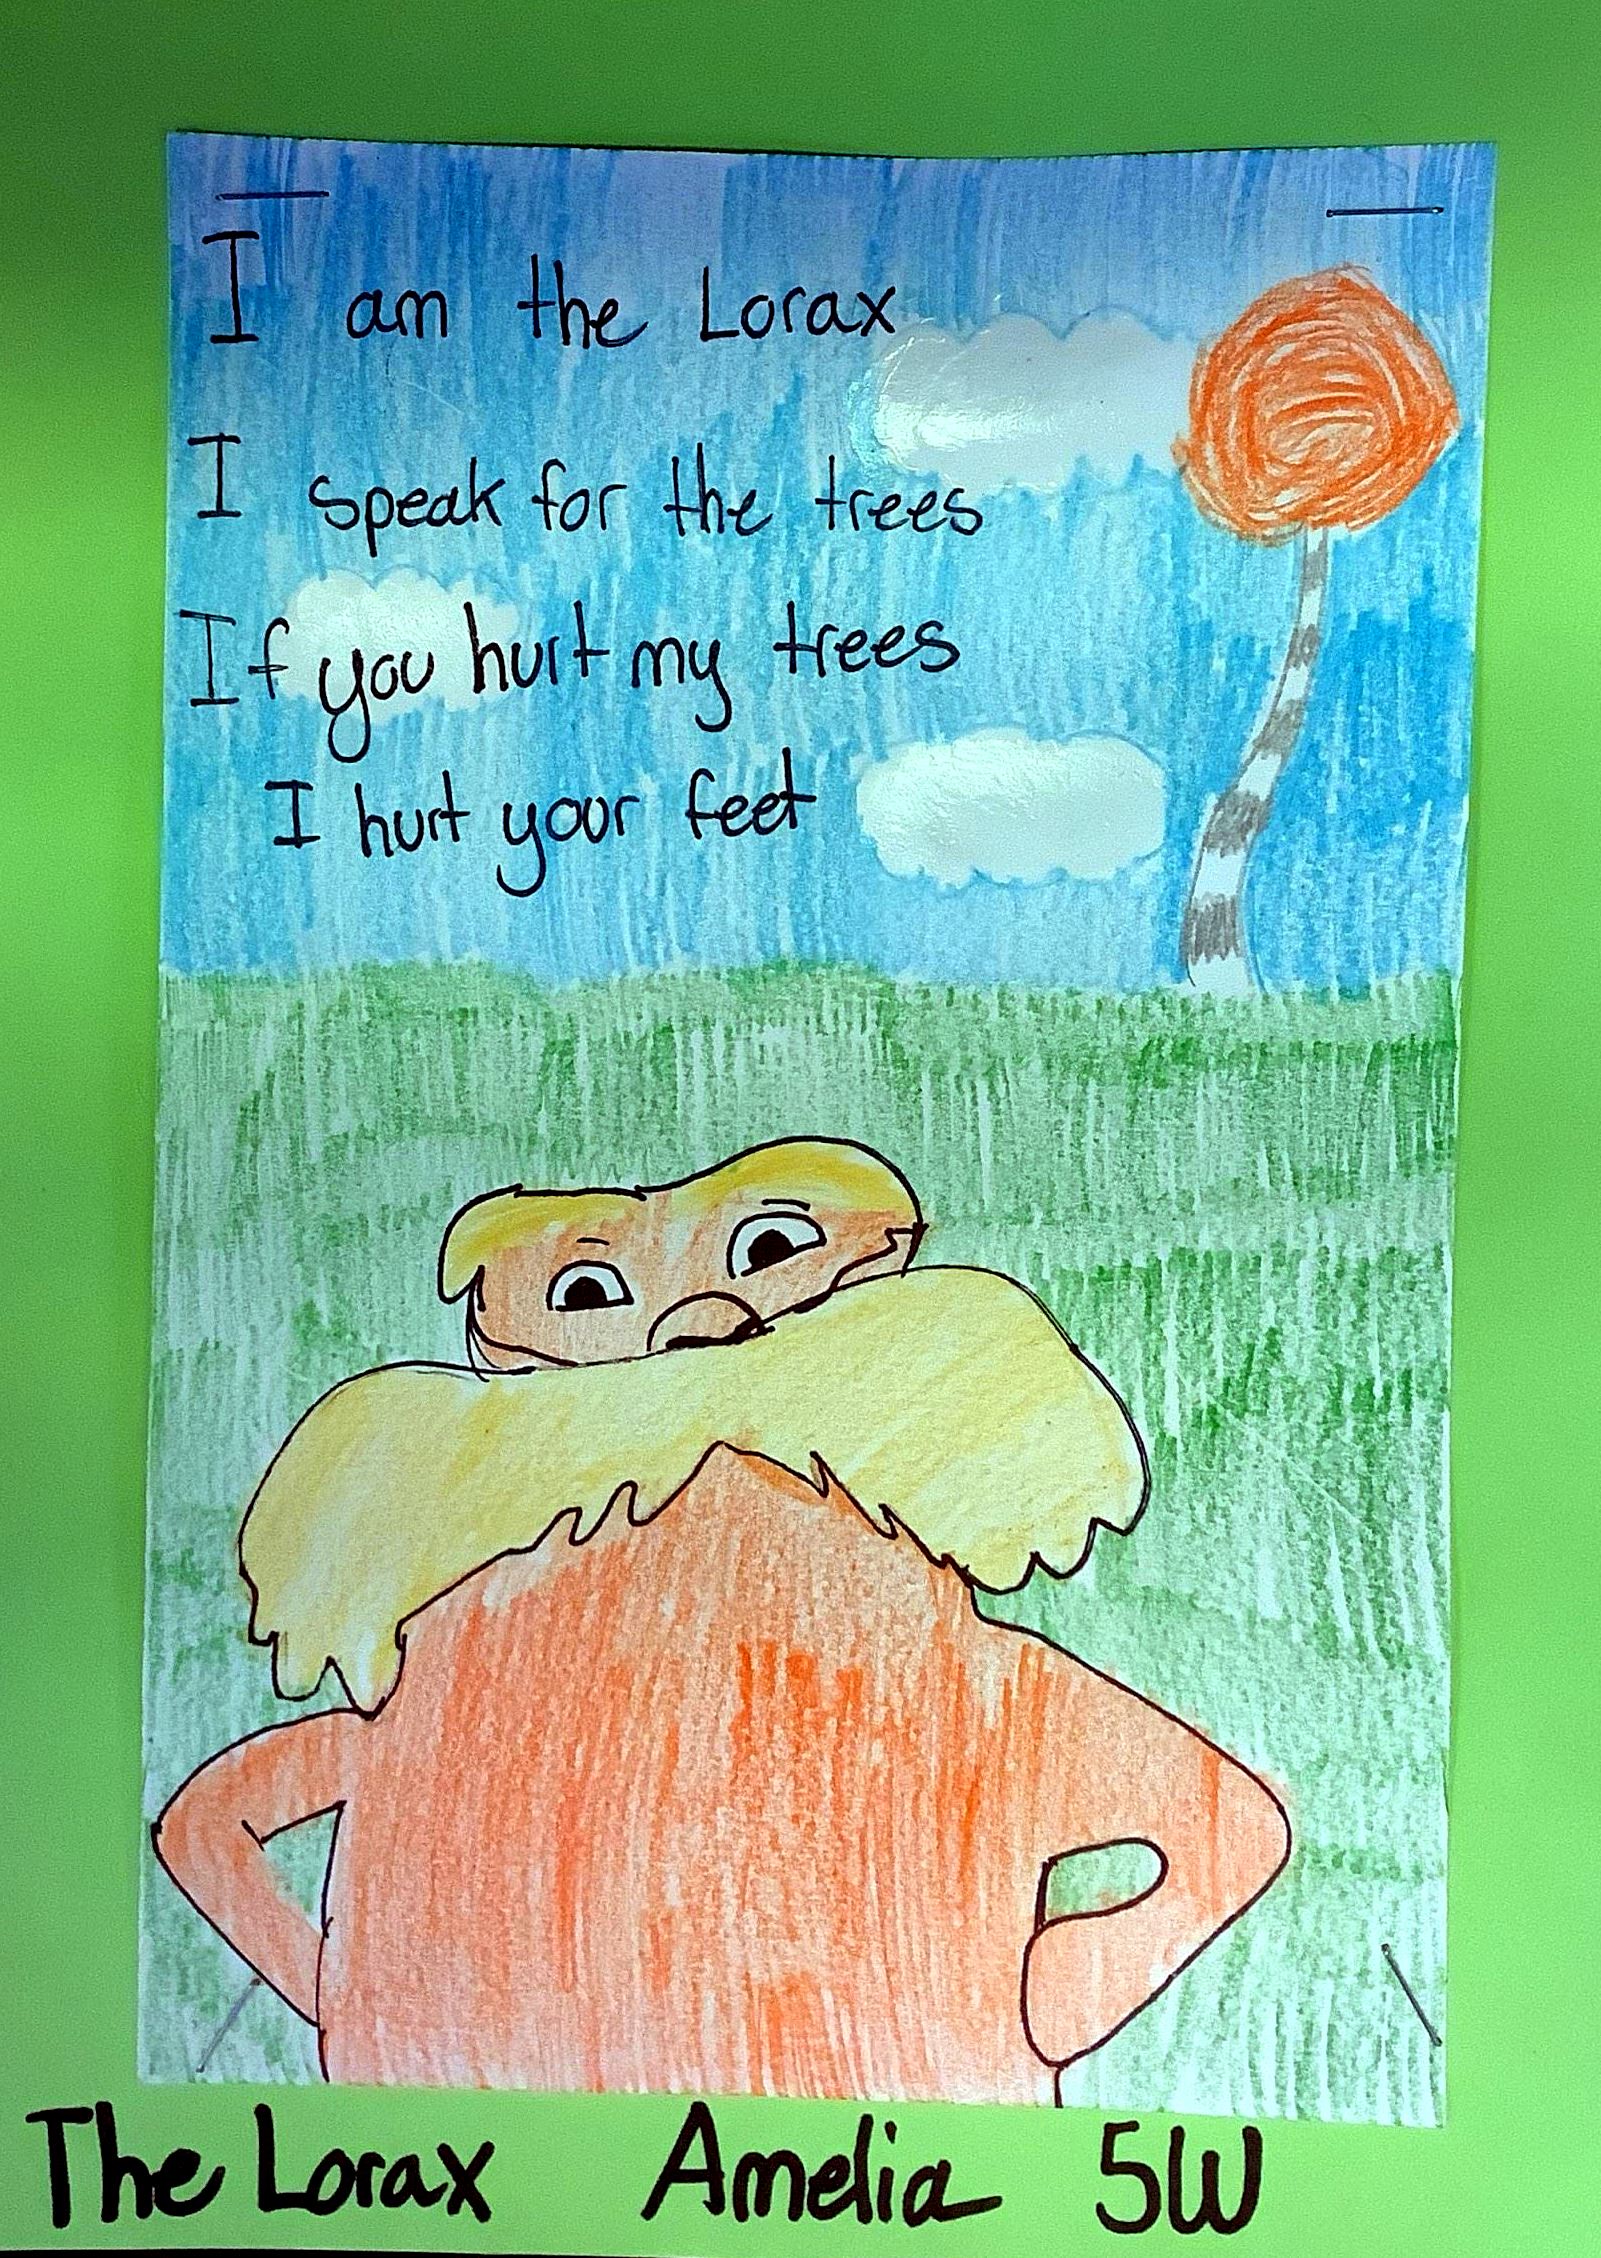 I am the Lorax
I speak for the trees
If you hurt my trees
I hurt your feet
The Lorax Amelia 5W